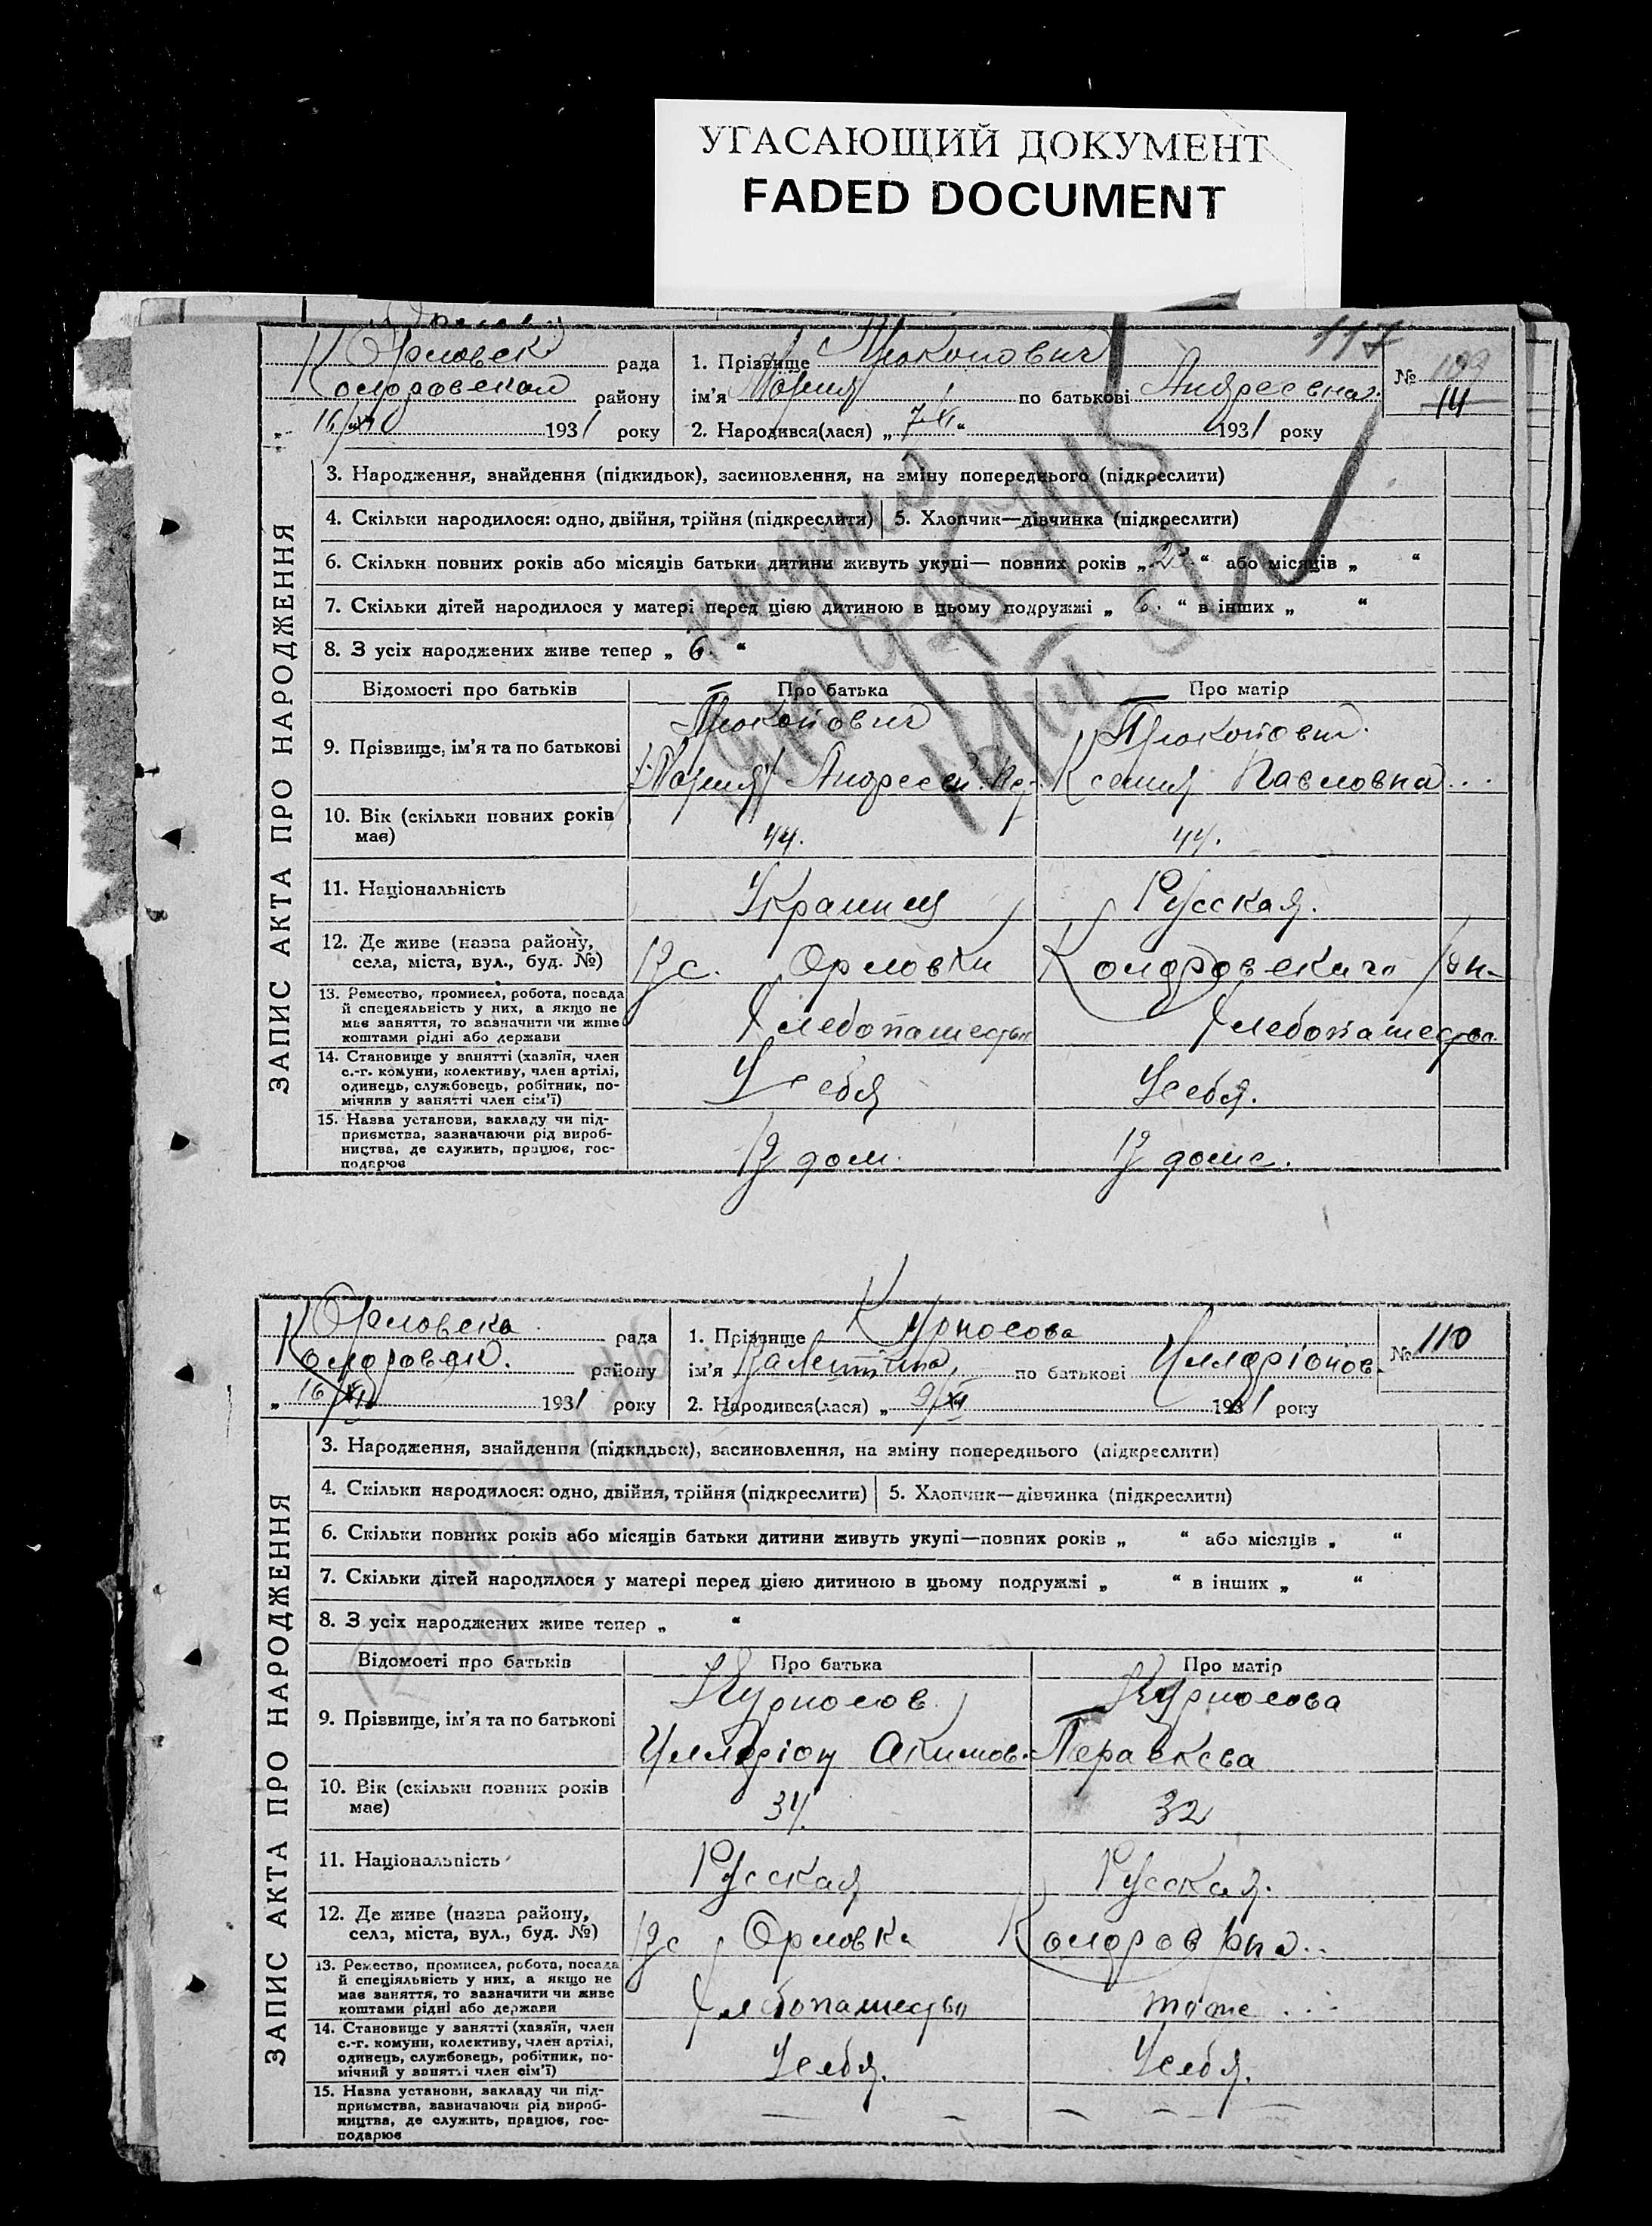 УГАСАЮЩИЙ ДОКУМЕНТ
FADED DOCUMENT
117
Орловск рада
району
16/XI 1931 року
1. Прізвище Прокопович
ім'я Мария по батькові Андреевна.
2. Народився(лася) „ 7/XI “ 1931 року
№ 109
14
ЗАПИС АКТА ПРО НАРОДЖЕННЯ
3. Народження, знайдення (підкидьок), засиновлення, на зміну попереднього (підкреслити)
4. Скільки народилося: одно, двійня, трійня (підкреслити) 5. Хлопчик—дівчинка (підкреслити)
6. Скільки повних років або місяців батьки дитини живуть укупі— повних років „ 23 “ або місяців „ “
7. Скільки дітей народилося у матері перед цією дитиною в цьому подружжі „ 6. “ в інших „ “
8. З усіх народжених живе тепер „ 6. “
Відомості про батьків Про батька Про матір
9. Прізвище, ім'я та по батькові
Прокопович
Андреей
Прокопович.
Ксения Павловна
10. Вік (скільки повних років має) 44. 44.
11. Національність Украинец Русская.
12. Де живе (назва району,
села, міста, вул., буд. №)
В с. Орловки
13. Ремество, промисел, робота, посада
й спецеяльність у них, а якщо не
має заняття, то вазначити чи живе
коштами рідні або держави
Хлебопашество
Хлебопашество.
14. Становище у занятті (хазяїн, член
с.-г. комуни, колективу, член артілі,
одинець, службовець, робітник, по-
мічник у занятті член сім'ї)
У себя
У себя.
15. Назва установи, закладу чи під-
приємства, зазначаючи рід вироб-
ництва, де служить, працює, гос-
подарює
В дом.
В доме.
Орловска рада
району
„ 16/XI 1931 року
1. Прізвище Курносова
ім'я Валентина, по батькові Иларіонов.
2. Народився(лася) „ 9/XI 1931 року
№ 110
ЗАПИС АКТА ПРО НАРОДЖЕННЯ
3. Народження, знайдення (підкидьок), засиновлення, на зміну попереднього (підкреслити)
4. Скільки народилося: одно, двійня, трійня (підкреслити) 5. Хлопчик—дівчинка (підкреслити)
6. Скільки повних років або місяців батьки дитини живуть укупі—повних років „ “ або місяців „ “
7. Скільки дітей народилося у матері перед цією дитиною в цьому подружжі „ “ в інших „ “
8. З усіх народжених живе тепер „ “
Відомості про батьків Про батька Про матір
9. Прізвище, ім'я та по батькові
Курносов
Илларіон Акимов.
Курносова
Параскева
10. Вік (скільки повних років
має)
34.
32
11. Національність Русская Русская.
12. Де живе (назва району,
села, міста, вул., буд. №)
В с Орловка
13. Ремество, промисел, робота, посада
й спеціяльність у них, а якщо не
має заняття, то зазначити чи живе
коштами рідні або держави
Хлебопашество
тоже
14. Становище у занятті (хазяїн, член
с.-г. комуни, колективу, член артілі,
одинець, службовець, робітник, по-
мічний у занятті член сім'ї)
У себя.
У себя.
15. Назва установи, закладу чи під-
приємства, вазначаючи рід вироб-
ництва, де служить, працює, гос-
подарює